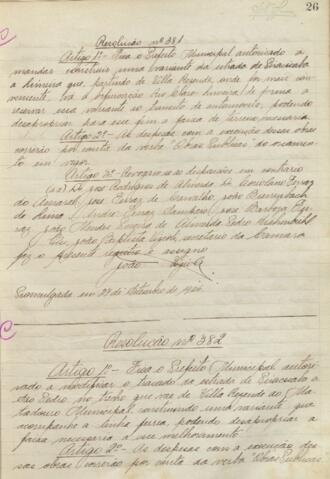 26
Resolução nº 381
Artigo 1º - Fica o Prefeito Municipal autorisado a
mandar construir uma variante da estrada de Piracicaba
a Limeira que, partindo de Villa Rezende, onde for mais con-
veniente, vá á bifurcação Rio Claro Limeira de forma a
servir essa variante ao transito de automoveis, podendo
desapropriar para esse fim a faixa de terreno necessaria
Artigo 2º - As despesas com a execução dessas obras
correrão por conta da verba "Obras Publicas" do orçamen-
to em vigor.
Artigo 3º - Revogam-se as disposições em contrario
(aa) José Rodrigues de Almeida
do Amaral José Ferraz de Carvalho, João
de Lima Ferraz Sampaio José Barboza Fer-
raz João Mendes Pereira de Almeida Pedro
Eu, João Baptista, secretario da Camara
fez o presente registro e assigno
João
Promulgada em 27 de Setembro de
Resolução nº 382
Artigo 1º - Fica o Prefeito Municipal autori-
sado a modificar o traçado da estrada de Piracicaba
a São Pedro no trecho que vae de Villa Rezende ao Ma-
tadouro Municipal, construindo uma variante que
acompanhe a linha ferrea, podendo desapropriar a
faixa necessaria a esse melhoramento.
Artigo 2º - As despesas com a execução des-
sas obras correrão por conta da verba "Obras Publicas